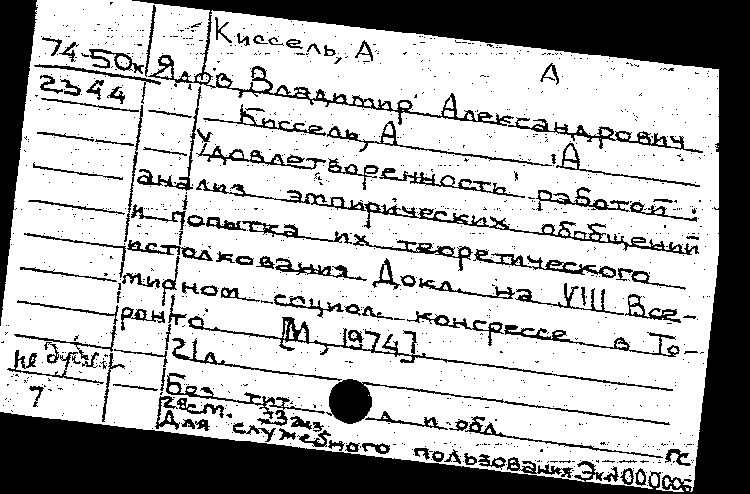 Киссель, А
А
74-50к Ядов, Владимир Александрович.
2344
Киссель, А
А
Удовлетворенность работой:
анализ эмпирических обобщений
и попытка их теоретического
истолкования. Докл. на VIII Все-
мирном социол. конгрессе в То-
ронто. [М, 1974].
21 л.
не
7
Без тит. л и обл.
28см. 23
ГС
Для служебного пользования Экз N000006